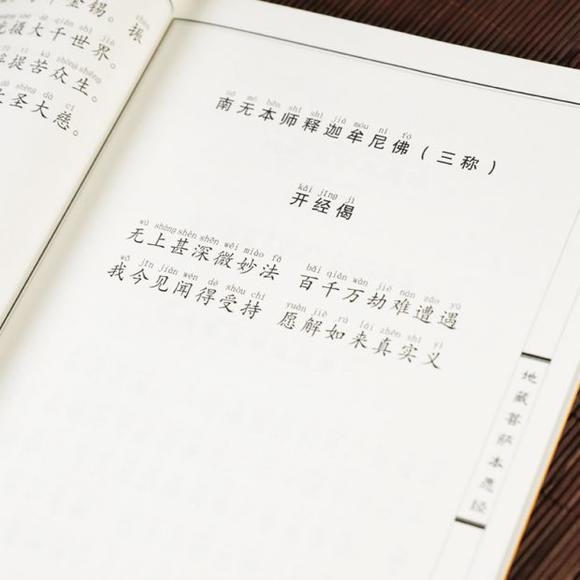 金锡。振
摄大千世界。
提苦众生。
圣大慈。
nā mó běn shī shì jiā móu ní fó
南无本师释迦牟尼佛(三称)
kāi jīng jì
开经偈
wú shàng shèn shēn wēi miào fǎ bǎi qiān wàn jié nán zāo yù
无上甚深微妙法 百千万劫难遭遇
wǒ jīn jiàn wén dé shòu chí yuàn jiě rú lái zhēn shí yì
我今见闻得受持 愿解如来真实义
地藏菩萨本愿经